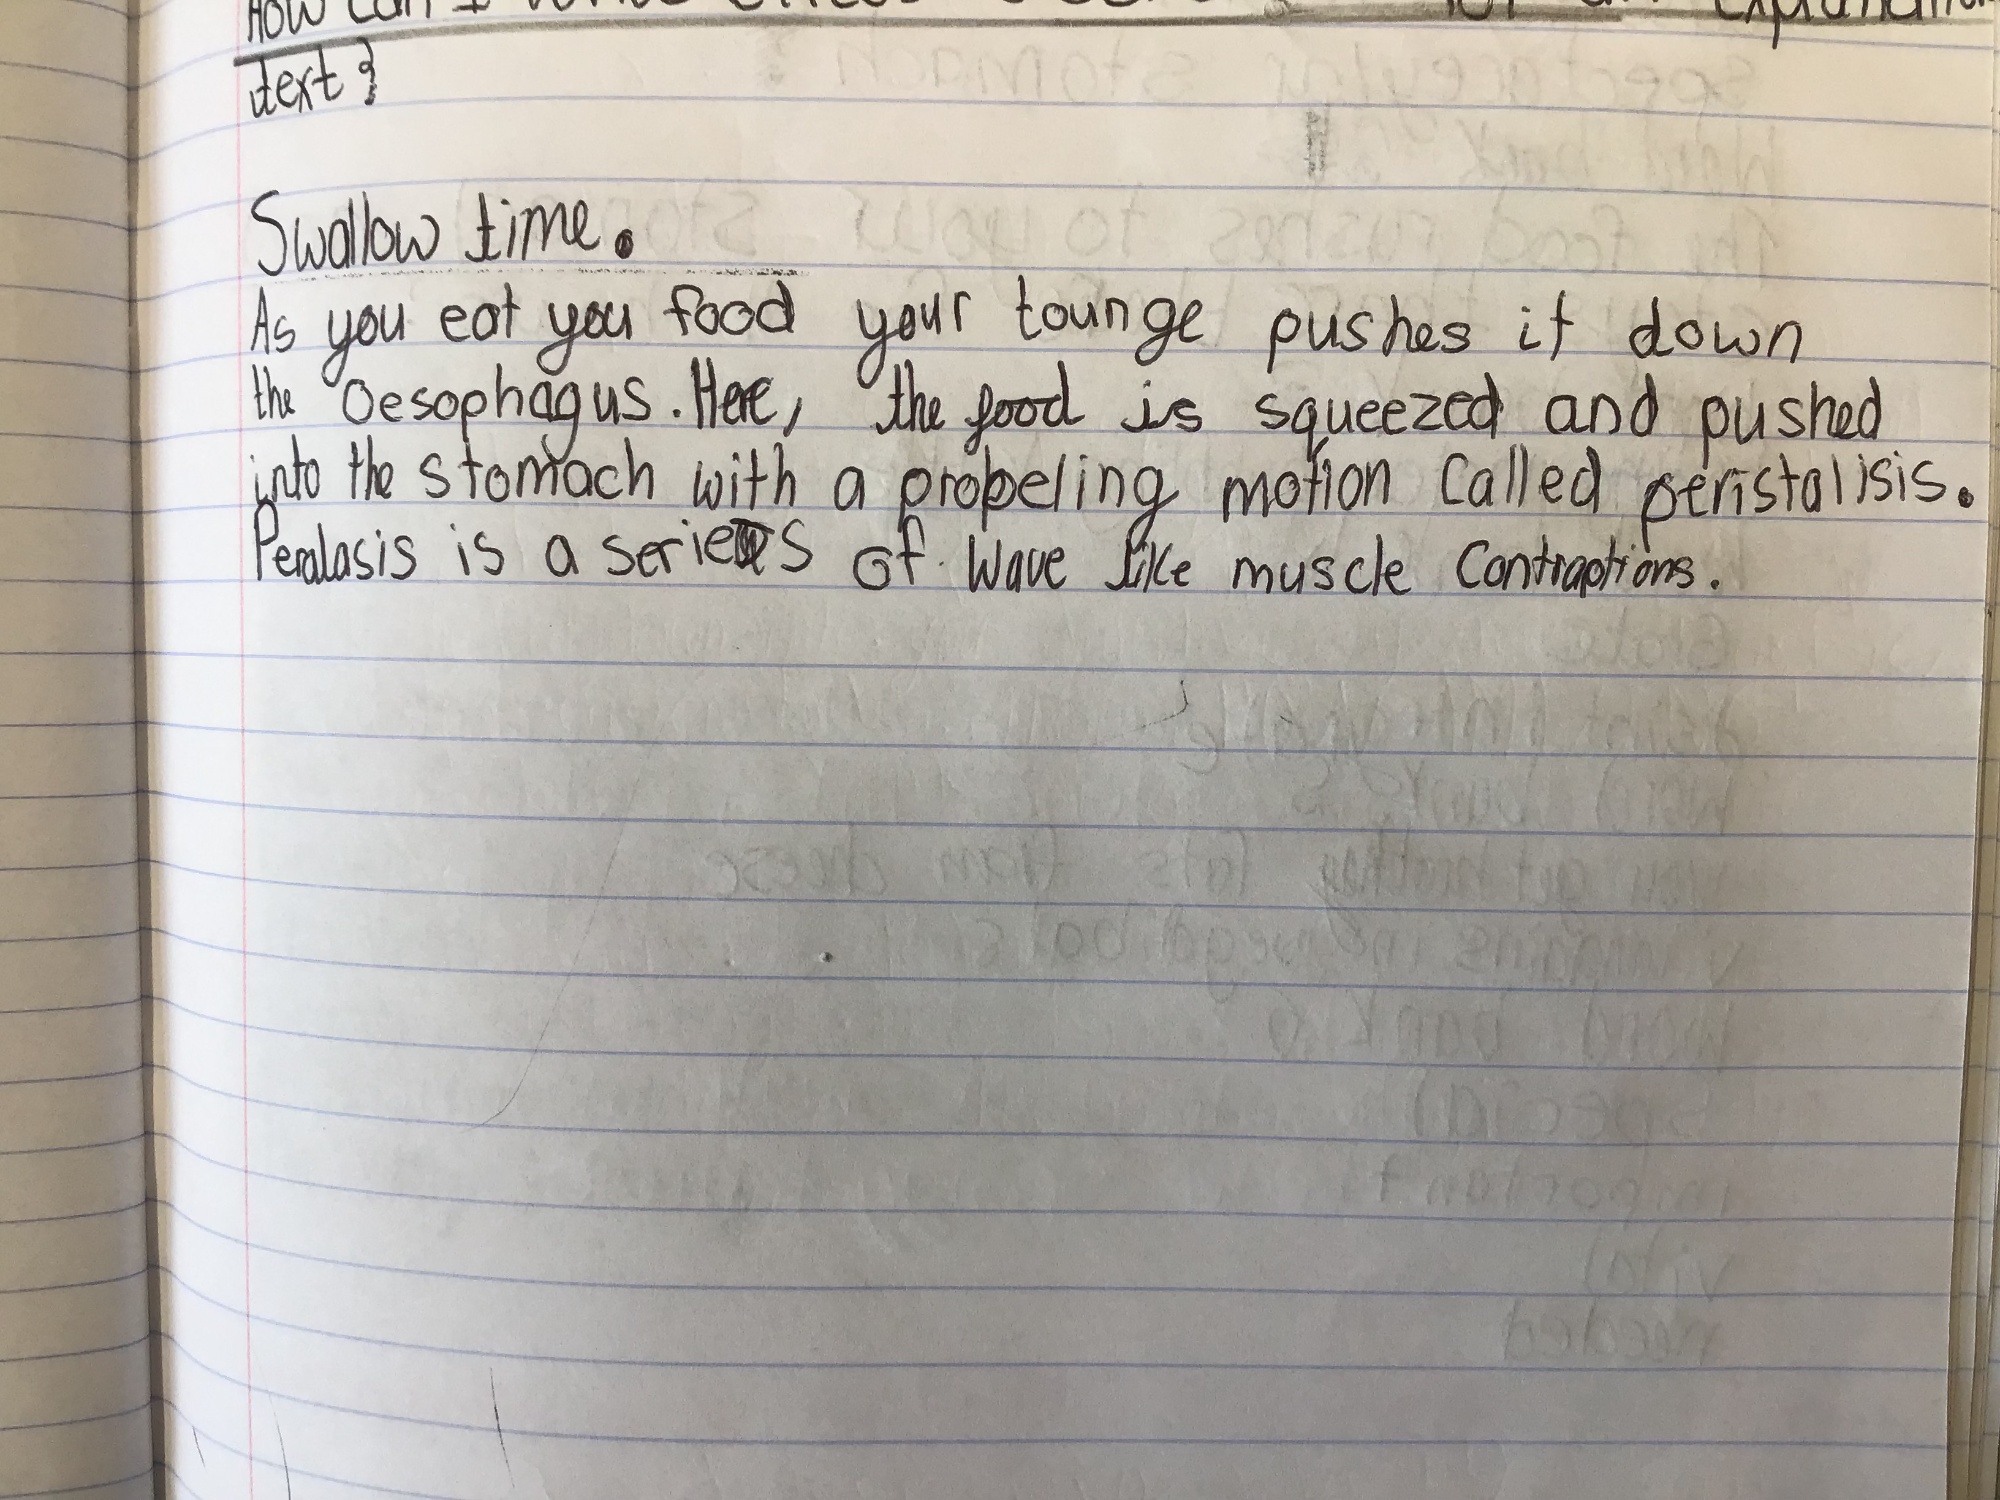 How can I write for an explanation
text?
Swallow time.
As you eat you food your tounge pushes it down
the Oesophagus. Here, the food is squeezed and pushed
into the stomach with a propeling motion called peristalisis.
Peralasis is a series of wave like muscle Contraptions.